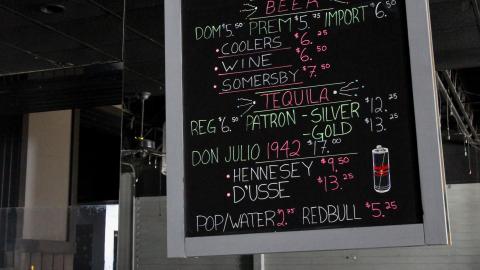 BEER
DOM $5.50 PREM $5.75 IMPORT $6.50
• COOLERS $6.25
• WINE $6.50
• SOMERSBY $7.50
TEQUILA
REG $6.50 PATRON - SILVER $12.25
- GOLD $13.25
DON JULIO 1942 $17.00
• HENNESEY $9.50
• D'USSE $13.25
POP/WATER $2.75 REDBULL $5.25